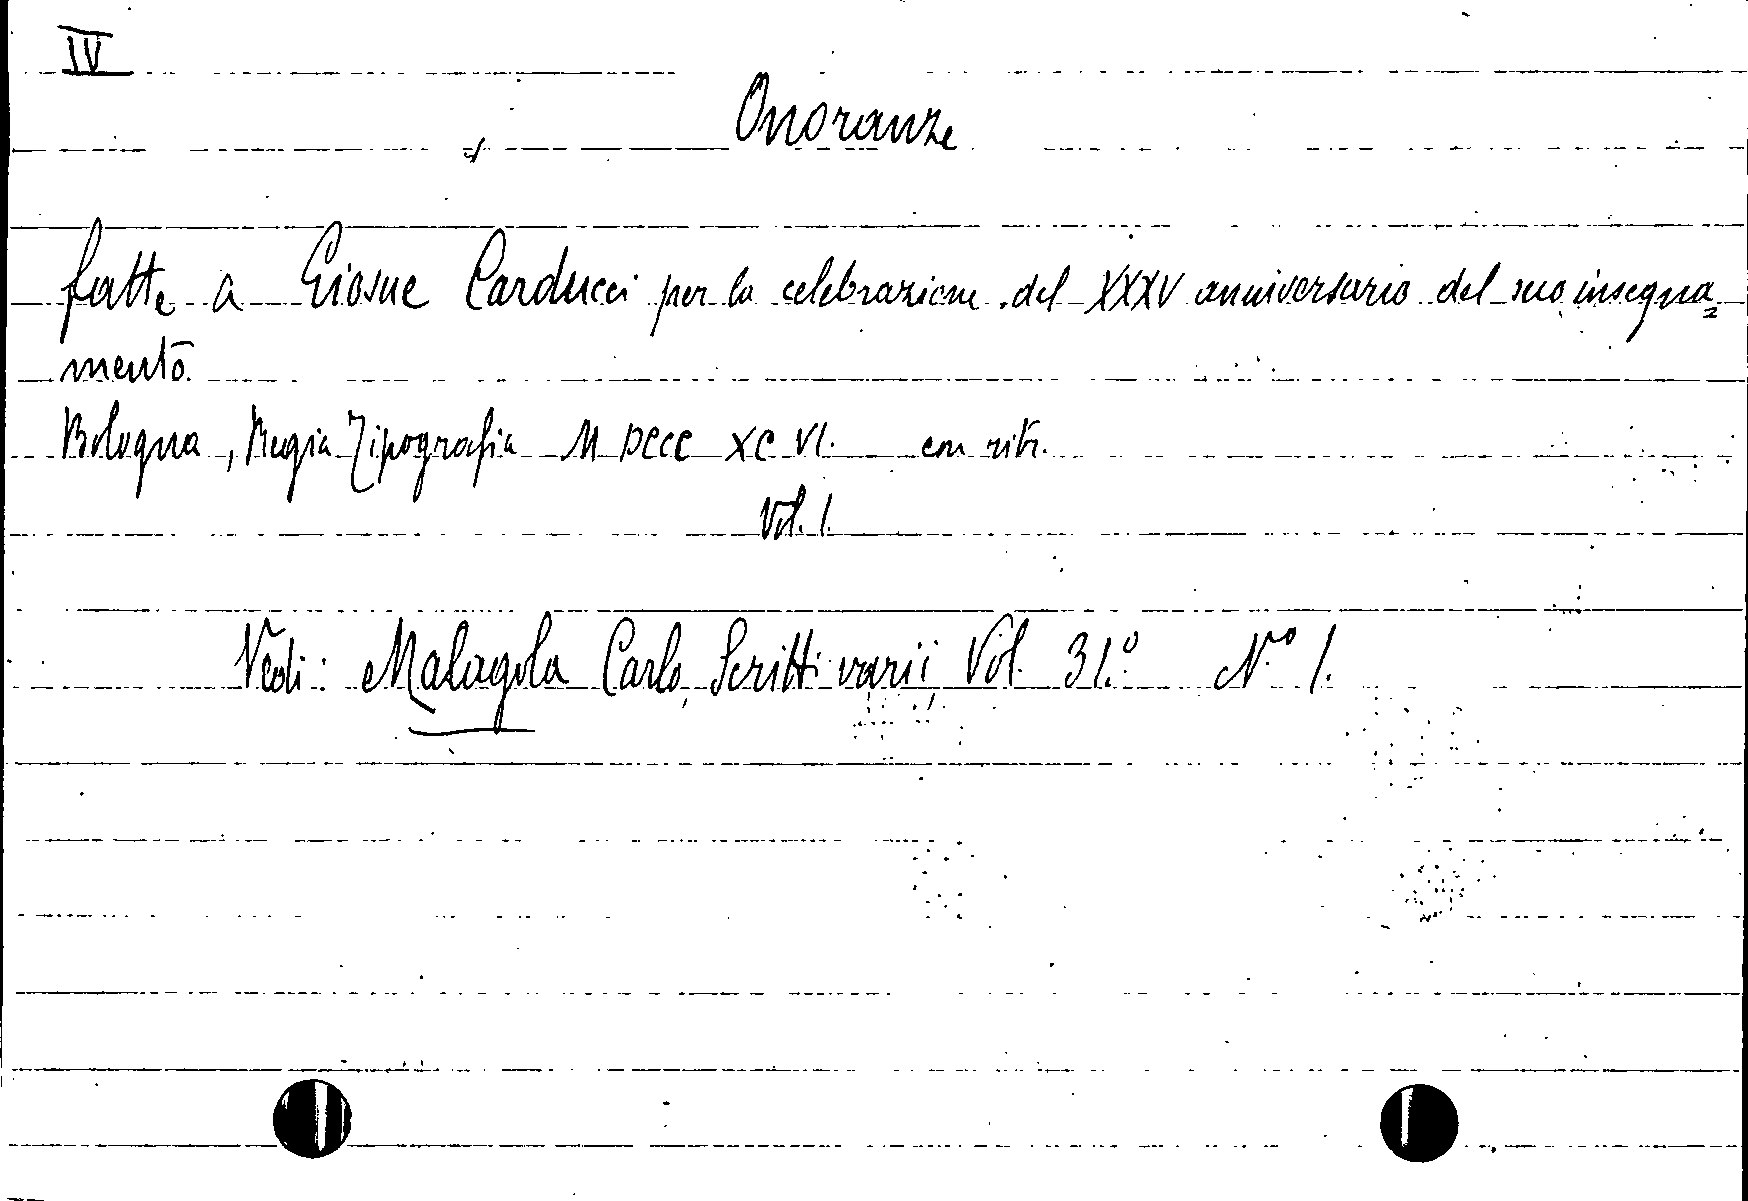 IV
Onoranze
fatte a Giosue Carducci per la celebrazione del XXXV anniversario del suo insegna=
mento.
Bologna, Regia Tipografia MDCCCXCVI. con ritr.
Vol. I.
Vedi: Malagola Carlo, Scritti varii, Vol. 31.º N.º 1.